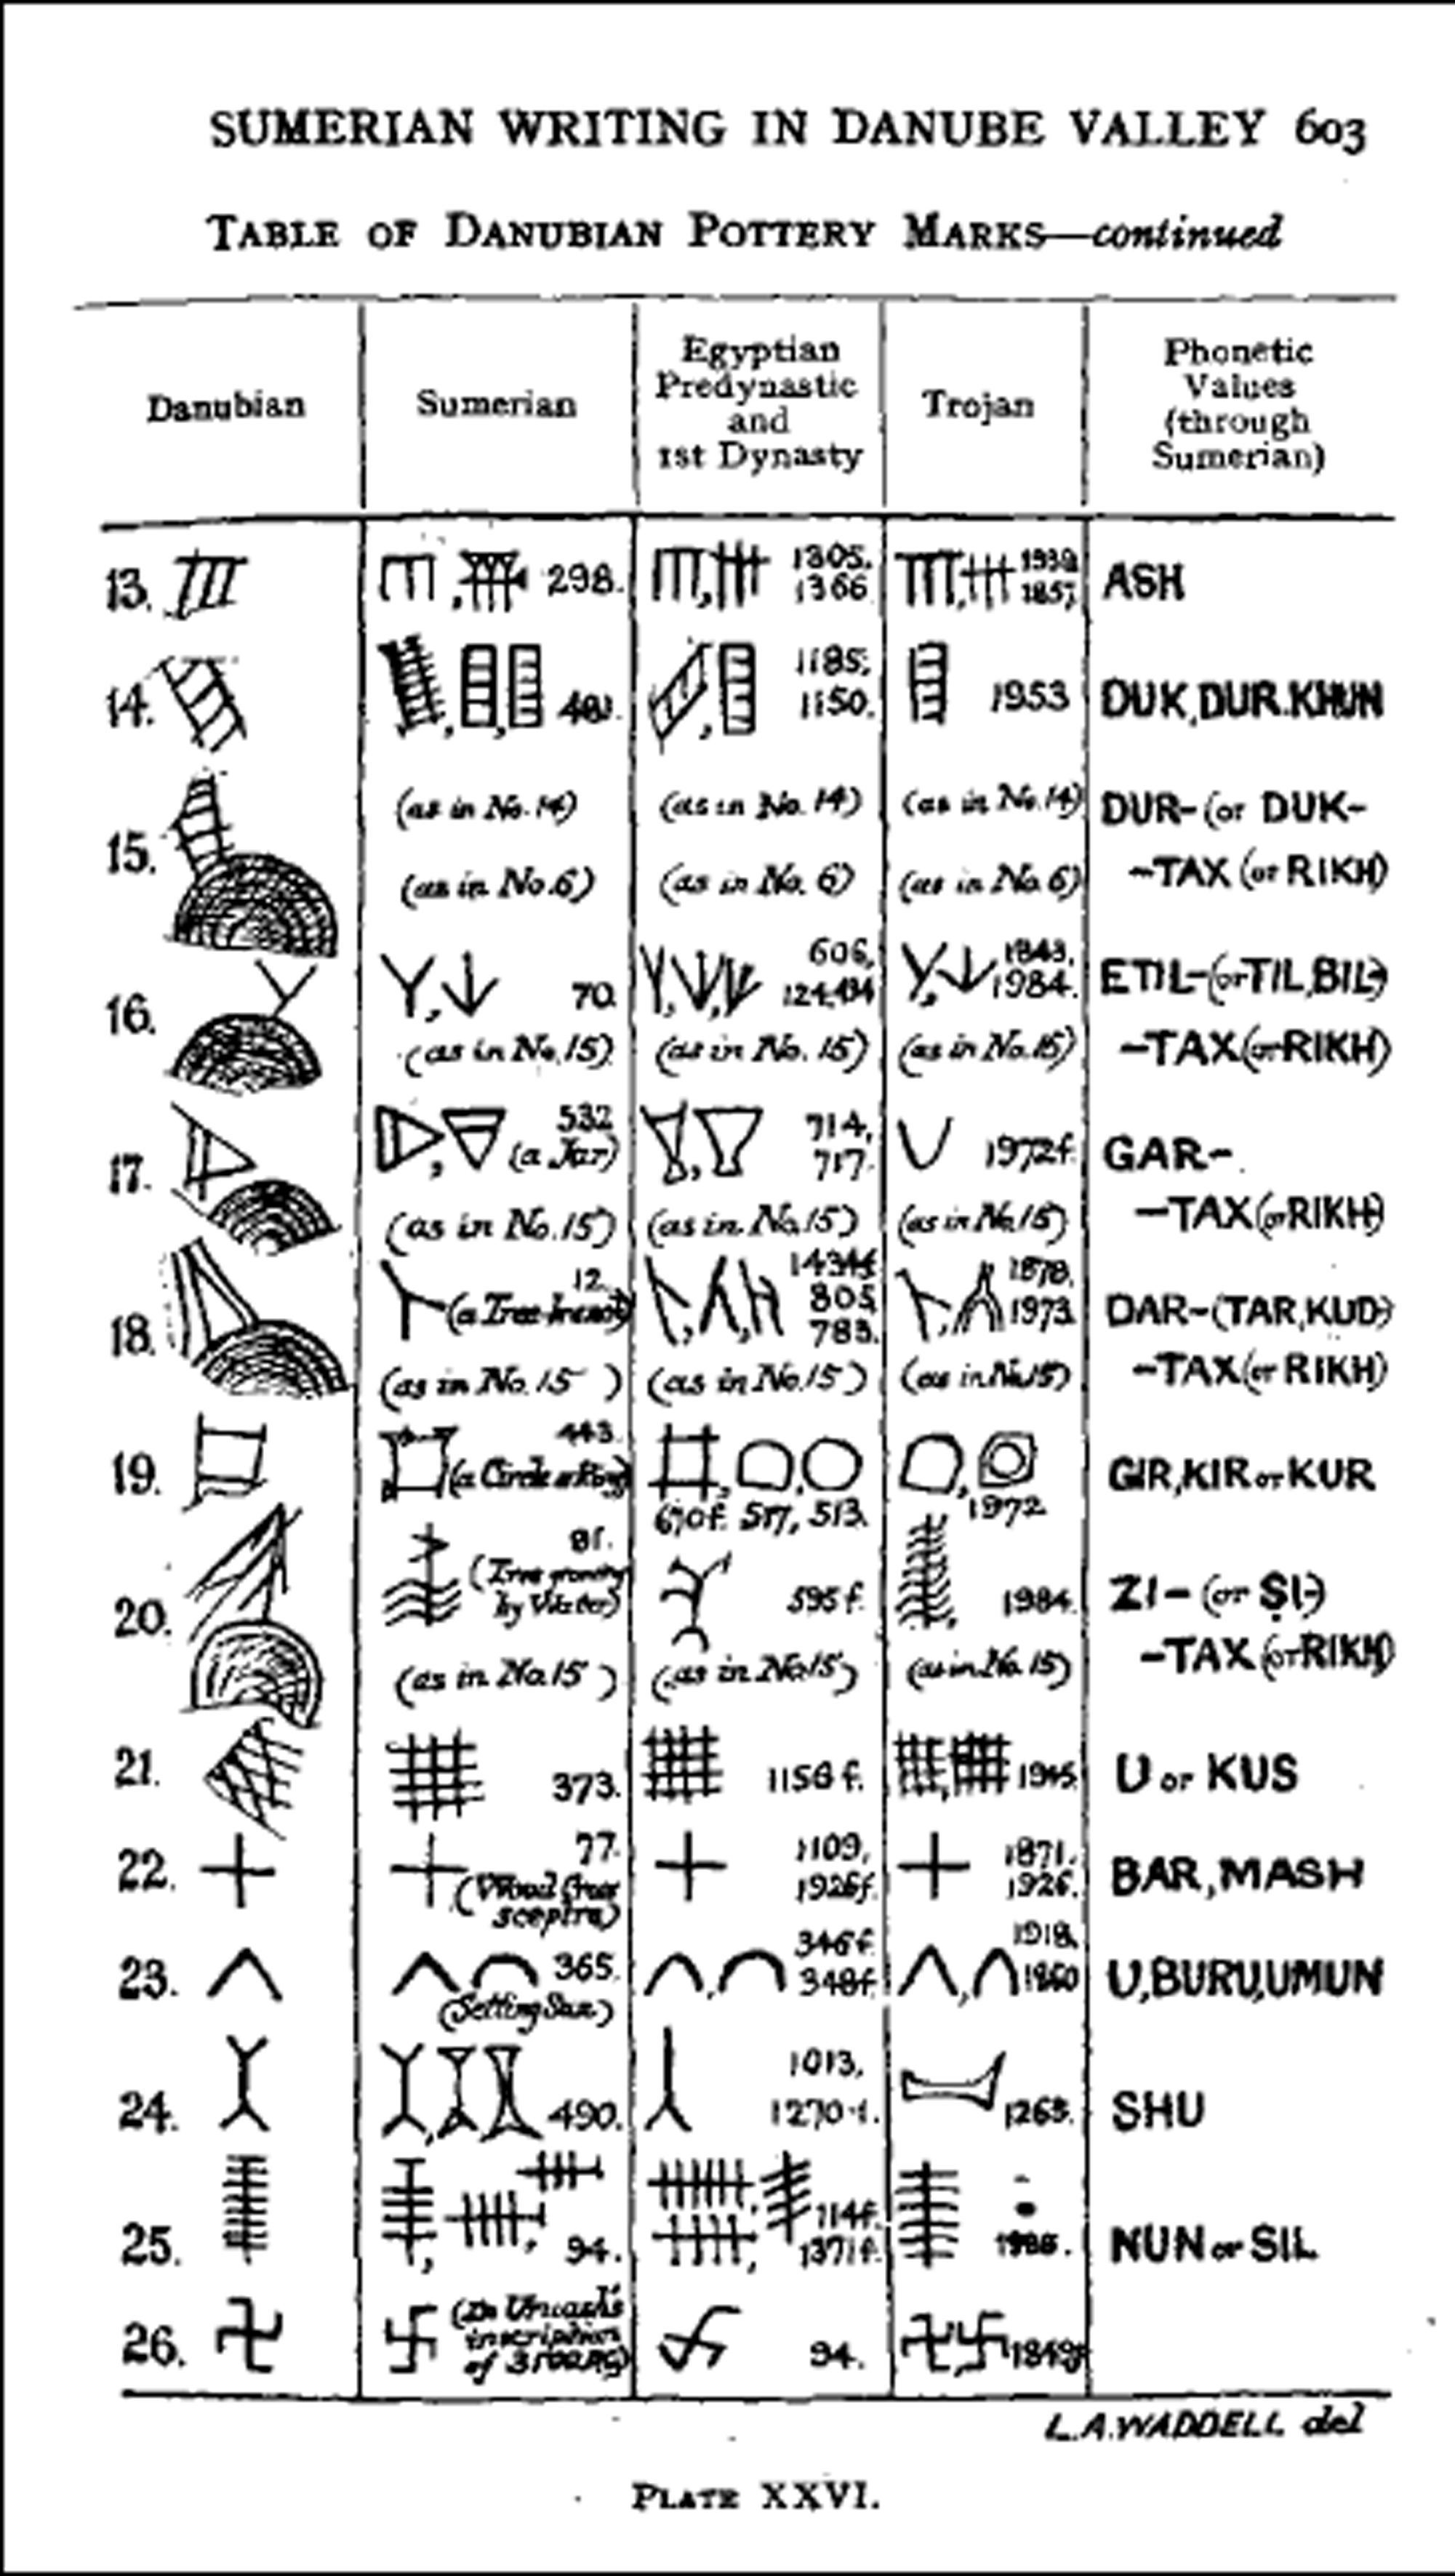 SUMERIAN WRITING IN DANUBE VALLEY 603
TABLE OF DANUBIAN POTTERY MARKS—continued
Danubian
Sumerian
Egyptian
Predynastic
and
1st Dynasty
Trojan
Phonetic
Values
(through
Sumerian)
13. 298. 1305. 1366. ASH
14. 1185, 1150. 1953 DUK, DUR. KHUN
15. (as in No. 14) (as in No. 14) (as in No. 14) DUR- (or DUK-
(as in No. 6) (as in No. 6) (as in No. 6) -TAX (or RIKH)
16. 70. 606, 1984. ETIL- (or TIL, BIL-)
(as in No. 15) (as in No. 15) (as in No. 15) -TAX (or RIKH)
17. 532 (a Jar) 714, 717. 1972f. GAR-
(as in No. 15) (as in No. 15) (as in No. 15) -TAX (or RIKH)
18. 12. (a Tree 805, 783. 1973. DAR- (TAR, KUD-)
(as in No. 15) (as in No. 15) (as in No. 15) -TAX (or RIKH)
19. 443. (a Circle or Ring) 670f. 517, 513. 1972 GIR, KIR or KUR
20. 81. (Tree growing by Water) 595f. 1984. ZI- (or ṢI-)
(as in No. 15) (as in No. 15) (as in No. 15) -TAX (or RIKH)
21. 373. 1156f. U or KUS
22. 77. (Wood Cross sceptre) 1109, 1926f. 1871. 1926. BAR, MASH
23. 365. (Setting Sun) 346f 348f. 1918. U, BURU, UMUN
24. 490. 1013, 1263. SHU
25. 94. 114f. 1371f. NUN or SIL
26. (In inscription of 94.
L. A. WADDELL del
PLATE XXVI.